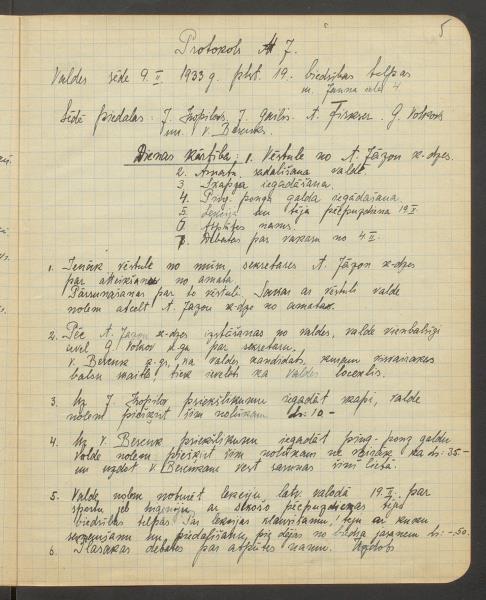 5
Protokols № 7.
Valdes sēde 9. II 1933 g. plkst. 19. biedrības telpās
m. Jauna iela 4
Sēdē piedalās: J. Kopilov, J. Gailis. A. Fiskser. G. Volkovs
un V. Berenks.
Dienas kārtība: 1. Vēstule no A. Jāzon k-dzes.
2. Amatu sadalīšana valdē
3 Skapja iegādāšana.
4. Ping-ponga galda iegādāšana
5 Lekcija un tēja pēcpusdiena 19 II
6 Atpūtes nams.
7. Debates par vakaru no 4. II.
1. Ienāk vēstule no mūsu sekretares A. Jāzon k-dzes
par atteikšanos no amata.
Pārrunāšanas par to vēstuli. Sakarā ar vēstuli valde
nolem atcelt A. Jazon k-dzi no amata.
2. Pēc A. Jazon k-dzes izstāšanas no valdes, valde vienbalsīgi
ievēl G. Volkov k-gu par sekretaru.
V. Berenk k-gs, kā valdes kandidats, kuram vairākas
balsu skaits, tiek ievēlēts kā valdes loceklis.
3. Uz J. Kopilov priekšlikumu iegādāt skapi, valde
nolem piešķirt šim nolūkam Ls: 10 –
4. Uz V. Berenk priekšlikumu iegādāt ping-pong galdu
Valde nolem piešķirt šim nolūkam ne vairāk kā Ls: 35 –
un uzdot V. Berenkam vest sarunas šinī lietā.
5. Valde nolem noturēt lekciju, latv. valodā 19. II par
sportu jeb higienu, ar sekošo pēcpusdienas tēju
biedrības telpās. Par lekcijas klausīšanu, tēju ar kūku
un piedalīšanu pie dejas no biedra jaņem Ls: –.50.
6. Plašākas debates par atpūtes namu. Uzdots